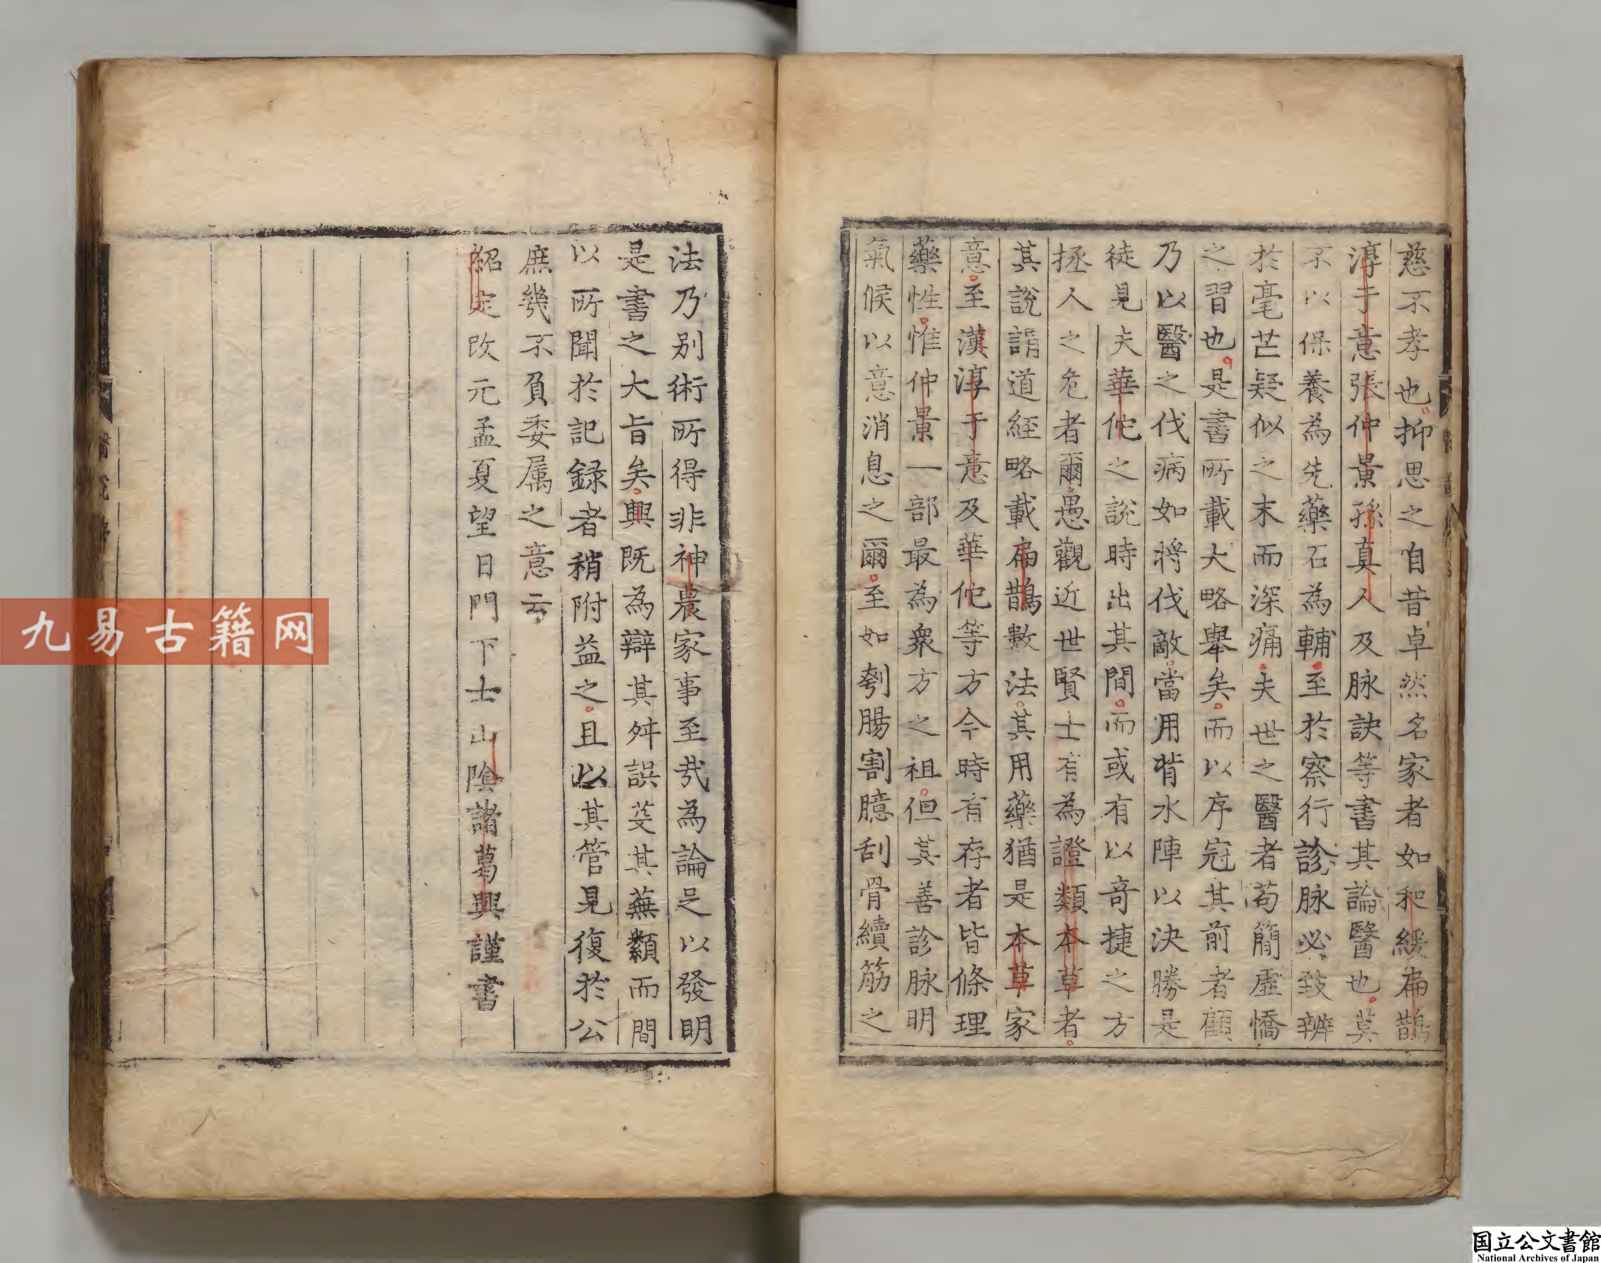 慈不孝也抑思之自昔卓然名家者如和緩扁鵲
淳于意張仲景孫真人及脉訣等書其論醫也莫
不以保養為先藥石為輔至於察行診脉必致辨
於毫芒疑似之末而深痛夫世之醫者苟簡虛憍
之習也是書所載大略舉矣而以序冠其前者顧
乃以醫之伐病如將伐敵當用背水陣以決勝是
徒見夫華佗之說時出其間而或有以奇捷之方
拯人之危者爾愚觀近世賢士有為證類本草者
其說謂道經略載扁鵲數法其用藥猶是本草家
意至漢淳于意及華佗等方今時有存者皆條理
藥性惟仲景一部最為衆方之祖但其善診脉明
氣候以意消息之爾至如刳腸割臆刮骨續筋之
法乃別術所得非神農家事至哉為論足以發明
是書之大旨矣興既為辯其舛誤芟其蕪纇而間
以所聞於記録者稍附益之且以其管見復於公
庶幾不負委属之意云
紹定改元孟夏望日門下士山陰諸葛興謹書
九易古籍网
国立公文書館
National Archives of Japan